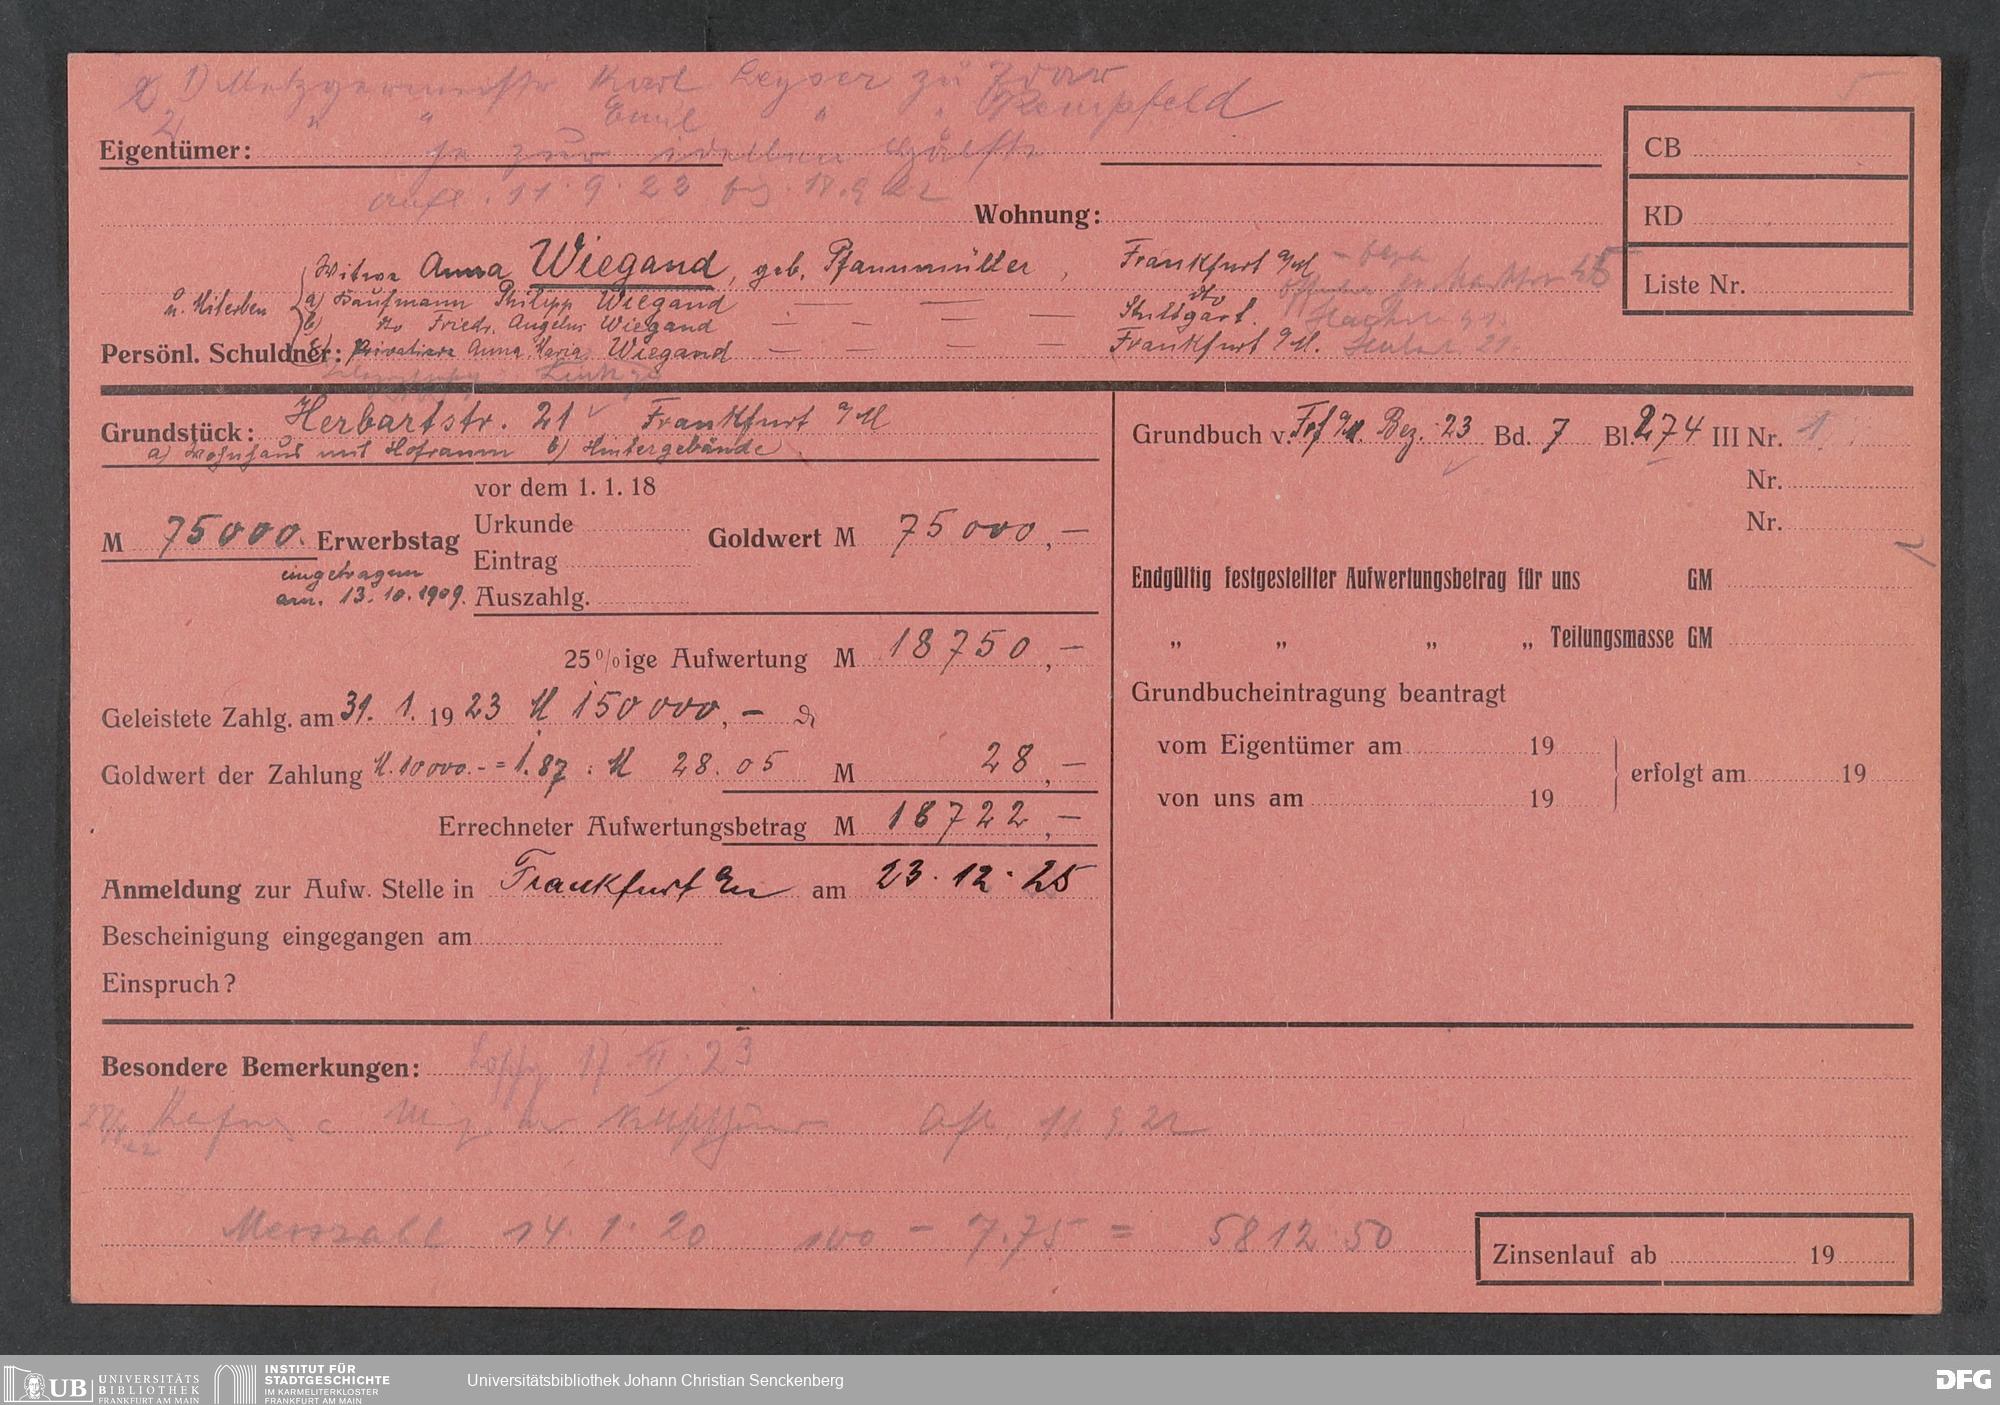 1) Metzgermeister Karl Leyser zu Idar
2) " " Emil " " Kempfeld
Eigentümer: je zur ideellen Hälfte
Aufl. 11.9.22 18.9.22
Wohnung:
CB
KD
Liste Nr.
Witwe Anna Wiegand, geb. Pfannmüller, Frankfurt a/M
u. Miterben a) Kaufmann Philipp Wiegand — — — dto
b) dto Friedr. Angelus Wiegand — — — — Stuttgart.
Persönl. Schuldner: c) Privatiere Anna Maria Wiegand — — — — Frankfurt a/M.
Grundstück: Herbartstr. 21 Frankfurt a/M
a) Wohnhaus mit Hofraum b) Hintergebäude
Grundbuch v. Ffm Bez. 23 Bd. 7 Bl. 274 III Nr. 1
Nr.
Nr.
vor dem 1. 1. 18
M 75000. Erwerbstag Urkunde Goldwert M 75000,—
Eintrag
eingetragen
am. 13.10.1909. Auszahlg.
25%ige Aufwertung M 18750,—
Geleistete Zahlg. am 31. 1. 1923 M 150000,—
Goldwert der Zahlung M. 10000.- = 1.87 : M 28.05 M 28,—
Errechneter Aufwertungsbetrag M 18722,—
Anmeldung zur Aufw. Stelle in Frankfurt am 23.12.25
Bescheinigung eingegangen am
Einspruch?
Endgültig festgestellter Aufwertungsbetrag für uns GM
„ „ „ „ Teilungsmasse GM
Grundbucheintragung beantragt
vom Eigentümer am 19
von uns am 19
erfolgt am 19
Besondere Bemerkungen: 23
11.9.22
Messzahl 14.1.20 100 — 7.75 = 5812.50
Zinsenlauf ab 19
UB UNIVERSITÄTS
BIBLIOTHEK
FRANKFURT AM MAIN
INSTITUT FÜR
STADTGESCHICHTE
IM KARMELITERKLOSTER
FRANKFURT AM MAIN
Universitätsbibliothek Johann Christian Senckenberg
DFG